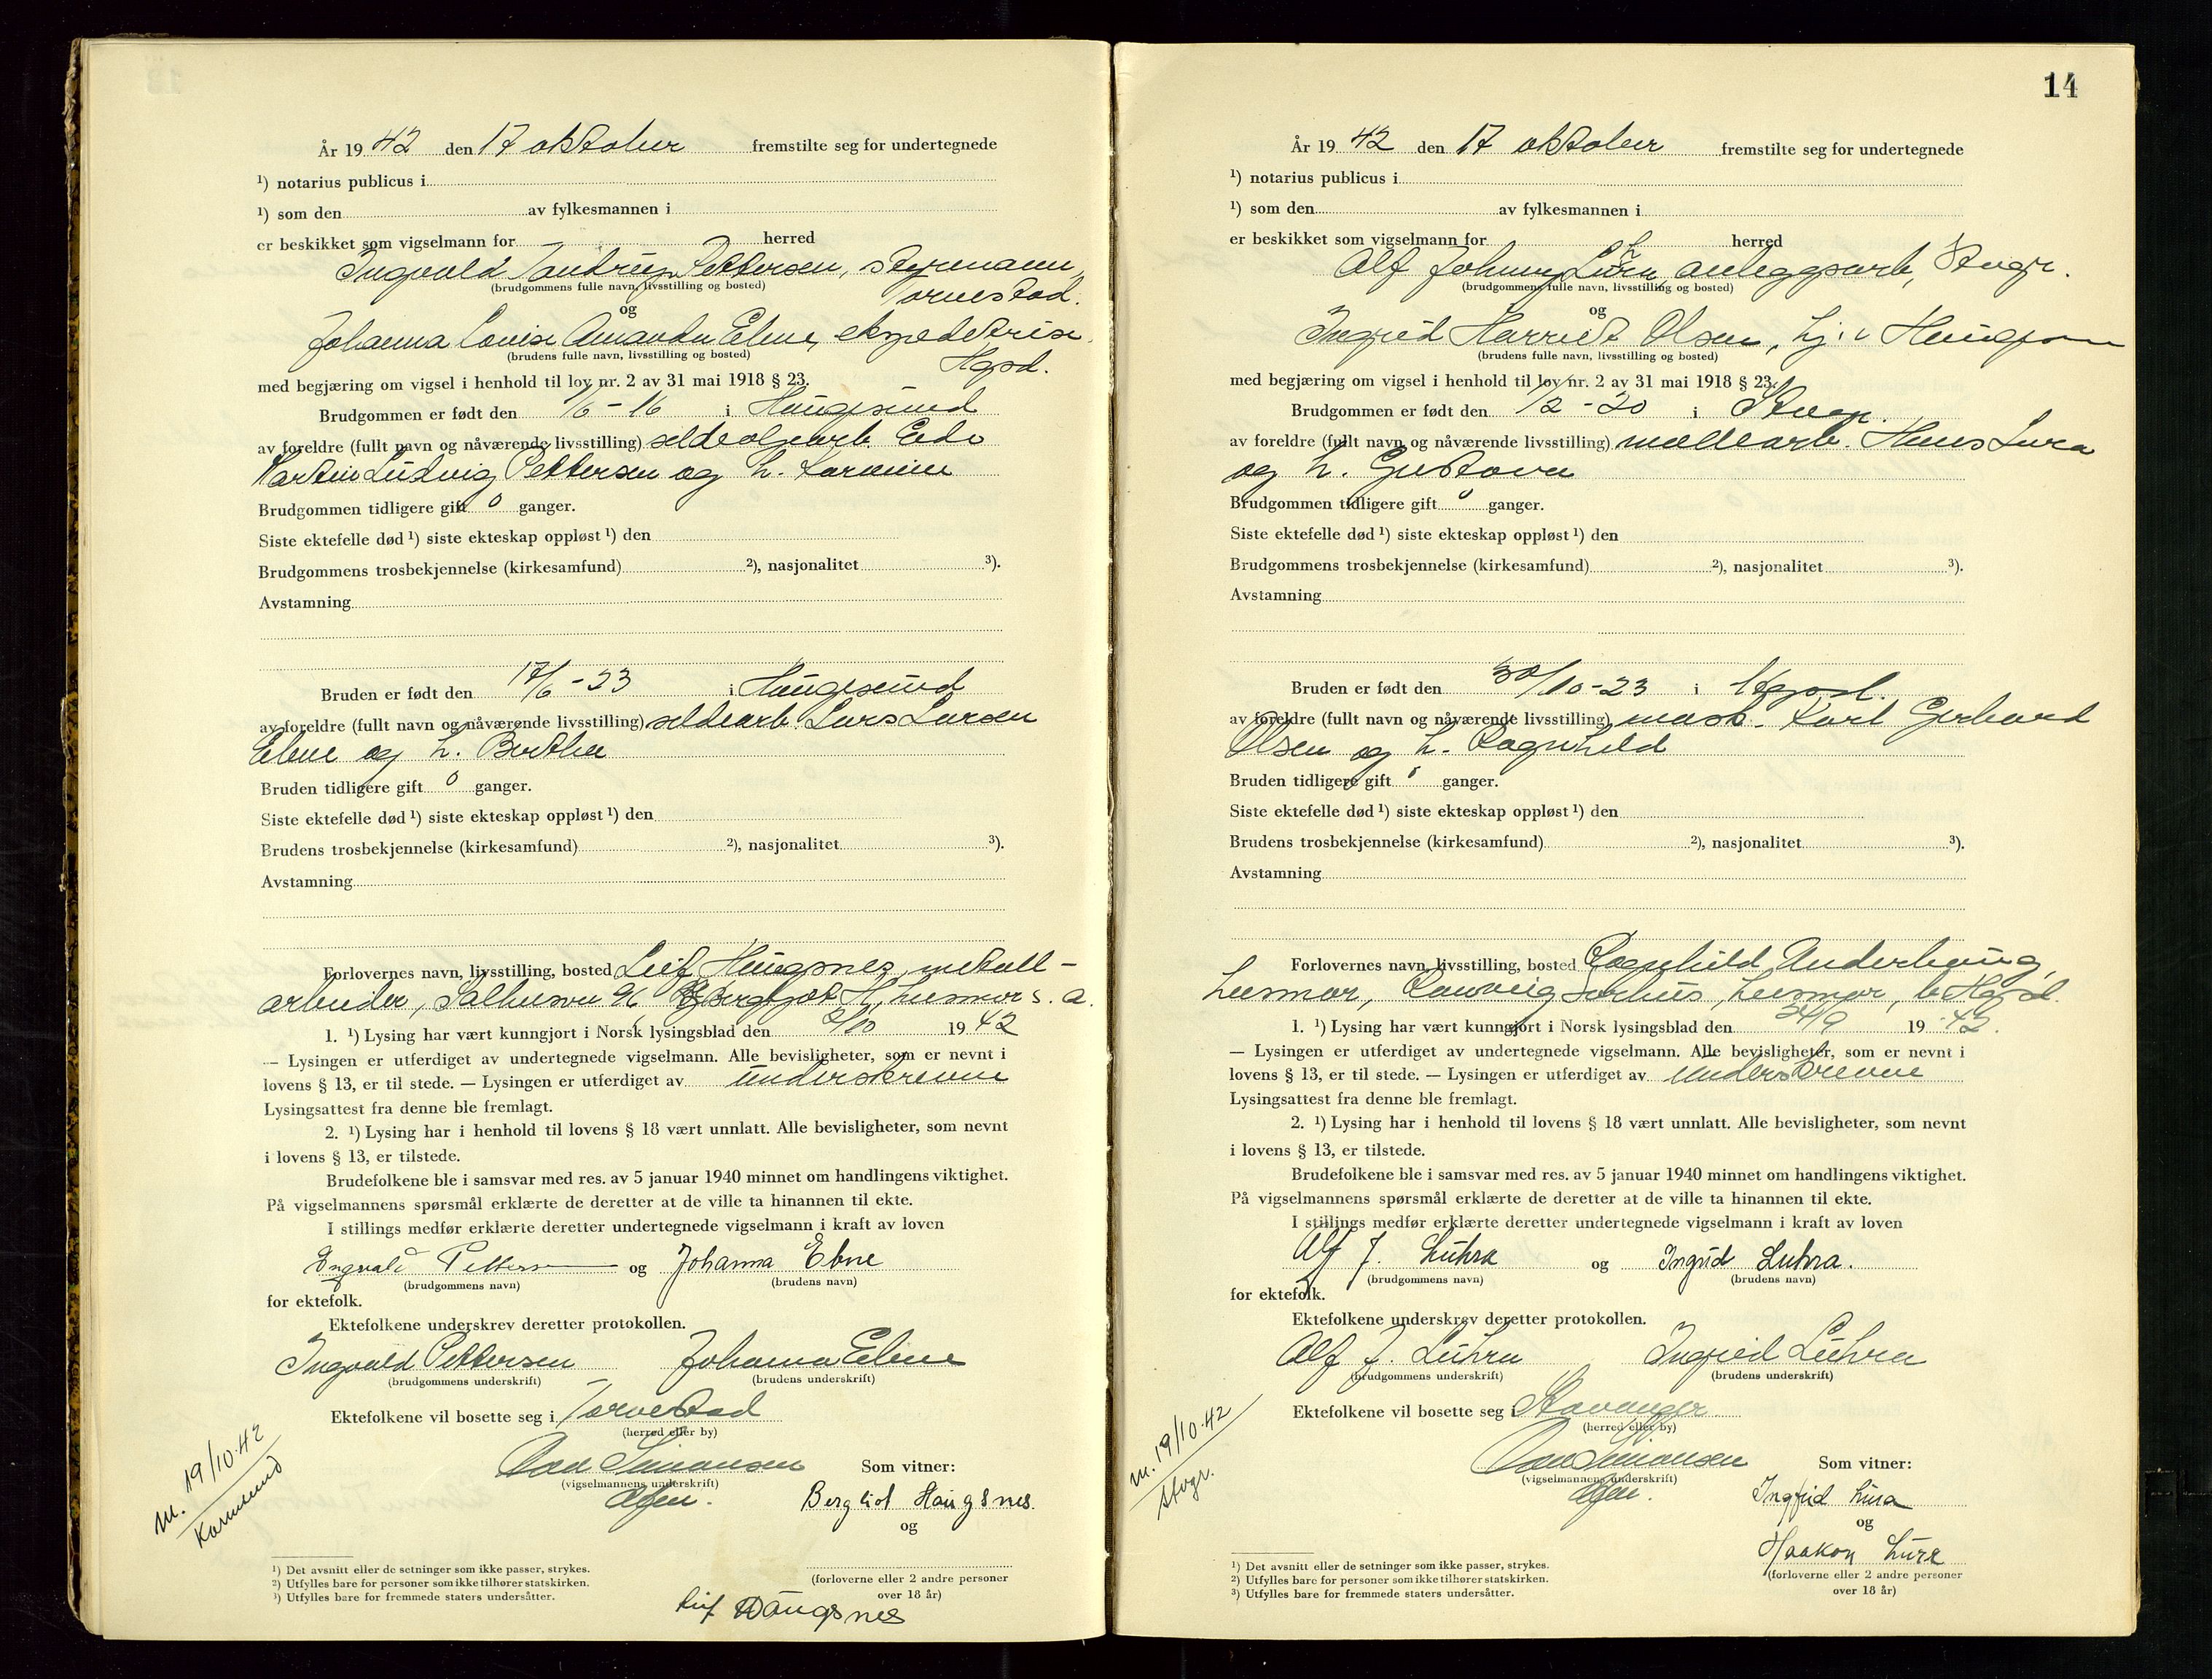 År 19 42 den 17 oktober fremstilte seg for undertegnede
¹) notarius publicus i
¹) som den av fylkesmannen i
er beskikket som vigselmann for herred
Ingvald Pettersen, styrmann,
(brudgommens fulle navn, livsstilling og bosted)
Torvestad.
og
Johanna Lovise Amanda Ebne, ekspeditrise
(brudens fulle navn, livsstilling og bosted)
Hgsd.
med begjæring om vigsel i henhold til lov nr. 2 av 31 mai 1918 § 23.
Brudgommen er født den 1/6-16 i Haugesund
av foreldre (fullt navn og nåværende livsstilling) sildoljearb.
Martin Ludvig Pettersen og h.
Brudgommen tidligere gift 0 ganger.
Siste ektefelle død ¹) siste ekteskap oppløst ¹) den
Brudgommens trosbekjennelse (kirkesamfund) ²), nasjonalitet ³).
Avstamning
Bruden er født den 17/6-23 i Haugesund
av foreldre (fullt navn og nåværende livsstilling) sildearb. Lars Larsen
Ebne og h. Berthe
Bruden tidligere gift 0 ganger.
Siste ektefelle død ¹) siste ekteskap oppløst ¹) den
Brudens trosbekjennelse (kirkesamfund) ²), nasjonalitet ³).
Avstamning
Forlovernes navn, livsstilling, bosted Leif Haugsnes, metall-
arbeider, Salhusvn 96 H., husmor s. a.
1. ¹) Lysing har vært kunngjort i Norsk lysingsblad den 2/10 19 42
— Lysingen er utferdiget av undertegnede vigselmann. Alle bevisligheter, som er nevnt i
lovens § 13, er til stede. — Lysingen er utferdiget av underskrevne
Lysingsattest fra denne ble fremlagt.
2. ¹) Lysing har i henhold til lovens § 18 vært unnlatt. Alle bevisligheter, som nevnt
i lovens § 13, er tilstede.
Brudefolkene ble i samsvar med res. av 5 januar 1940 minnet om handlingens viktighet.
På vigselmannens spørsmål erklærte de deretter at de ville ta hinannen til ekte.
I stillings medfør erklærte deretter undertegnede vigselmann i kraft av loven
Ingvald Pettersen og Johanna Ebne
(brudgommens navn) (brudens navn)
for ektefolk.
Ektefolkene underskrev deretter protokollen.
Ingvald Pettersen Johanna Ebne
(brudgommens underskrift) (brudens underskrift)
Ektefolkene vil bosette seg i Torvestad
(herred eller by)
Simonsen Som vitner:
(vigselmannens underskrift)
Haugsnes.
og
m. 19/10-42
Karmsund
¹) Det avsnitt eller de setninger som ikke passer, strykes.
²) Utfylles bare for personer som ikke tilhører statskirken.
³) Utfylles bare for fremmede staters undersåtter.
(forloverne eller 2 andre personer
over 18 år)
Leif Haugsnes
14
År 19 42 den 17 oktober fremstilte seg for undertegnede
¹) notarius publicus i
¹) som den av fylkesmannen i
er beskikket som vigselmann for herred
Alf Johnny Lura anleggsarb, Stvgr.
(brudgommens fulle navn, livsstilling og bosted)
og
Ingrid Harriet Olsen, hj. i Haugesund
(brudens fulle navn, livsstilling og bosted)
med begjæring om vigsel i henhold til lov nr. 2 av 31 mai 1918 § 23.
Brudgommen er født den 1/2-20 i Stvgr.
av foreldre (fullt navn og nåværende livsstilling) møllearb. Hans Lura
og h. Gustava
Brudgommen tidligere gift 0 ganger.
Siste ektefelle død ¹) siste ekteskap oppløst ¹) den
Brudgommens trosbekjennelse (kirkesamfund) ²), nasjonalitet ³).
Avstamning
Bruden er født den 30/10-23 i Hgsd.
av foreldre (fullt navn og nåværende livsstilling) mask. Karl Gerhard
Olsen og h. Ragnhild
Bruden tidligere gift 0 ganger.
Siste ektefelle død ¹) siste ekteskap oppløst ¹) den
Brudens trosbekjennelse (kirkesamfund) ²), nasjonalitet ³).
Avstamning
Forlovernes navn, livsstilling, bosted Ragnhild Underhaug,
husmor, husmor, b. Hgsd.
1. ¹) Lysing har vært kunngjort i Norsk lysingsblad den 24/9 19 42.
— Lysingen er utferdiget av undertegnede vigselmann. Alle bevisligheter, som er nevnt i
lovens § 13, er til stede. — Lysingen er utferdiget av underskrevne
Lysingsattest fra denne ble fremlagt.
2. ¹) Lysing har i henhold til lovens § 18 vært unnlatt. Alle bevisligheter, som nevnt
i lovens § 13, er tilstede.
Brudefolkene ble i samsvar med res. av 5 januar 1940 minnet om handlingens viktighet.
På vigselmannens spørsmål erklærte de deretter at de ville ta hinannen til ekte.
I stillings medfør erklærte deretter undertegnede vigselmann i kraft av loven
Alf J. Luhra og Ingrid Luhra.
(brudgommens navn) (brudens navn)
for ektefolk.
Ektefolkene underskrev deretter protokollen.
Alf J. Luhra Ingrid Luhra
(brudgommens underskrift) (brudens underskrift)
Ektefolkene vil bosette seg i Stavanger
(herred eller by)
Simonsen Som vitner:
(vigselmannens underskrift)
Ingrid Lura
og
Haakon Lura
m. 19/10-42
Stvgr.
¹) Det avsnitt eller de setninger som ikke passer, strykes.
²) Utfylles bare for personer som ikke tilhører statskirken.
³) Utfylles bare for fremmede staters undersåtter.
(forloverne eller 2 andre personer
over 18 år)